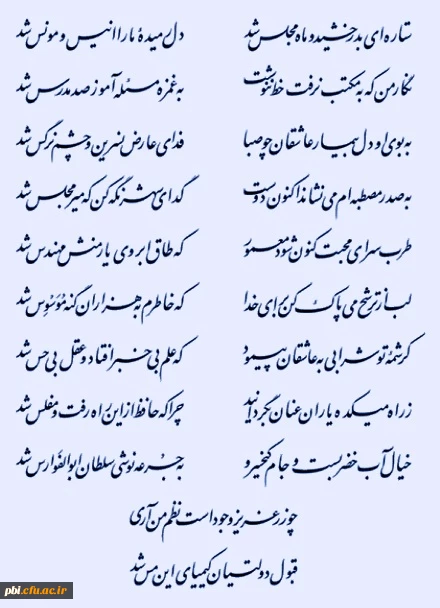 ستاره‌ای بدرخشید و ماه مجلس شد دل رمیدهٔ ما را انیس و مونس شد
نگار من که به مکتب نرفت و خط ننوشت به غمزه مسئله آموز صد مدرس شد
به بوی او دل بیمار عاشقان چو صبا فدای عارض نسرین و چشم نرگس شد
به صدر مصطبه‌ام می نشاند اکنون دوست گدای شهر نگه کن که میر مجلس شد
طرب سرای محبت کنون شود معمور که طاق ابروی یار منش مهندس شد
لب از ترشح می پاک کن برای خدا که خاطرم به هزاران گنه مُوَسْوِس شد
کرشمهٔ تو شرابی به عاشقان پیمود که علم بی خبر افتاد و عقل بی حس شد
ز راه میکده یاران عنان بگردانید چرا که حافظ از این راه رفت و مفلس شد
خیال آب خضر بست و جام کیخسرو به جرعه نوشی سلطان ابوالفوارس شد
چو زر عزیز وجود است نظم من آری
قبول دولتیان کیمیای این مس شد
pbi.cfu.ac.ir